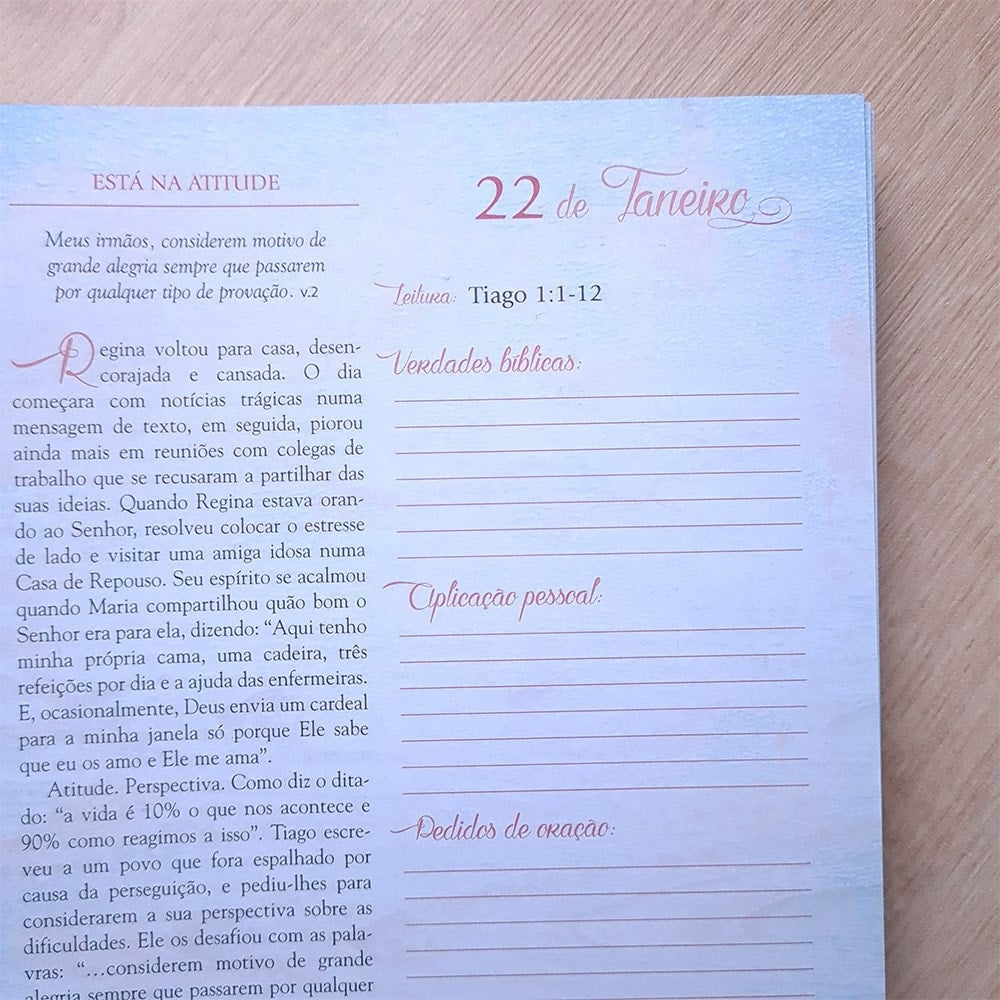 ESTÁ NA ATITUDE
Meus irmãos, considerem motivo de
grande alegria sempre que passarem
por qualquer tipo de provação. v.2
Regina voltou para casa, desen-
corajada e cansada. O dia
começara com notícias trágicas numa
mensagem de texto, em seguida, piorou
ainda mais em reuniões com colegas de
trabalho que se recusaram a partilhar das
suas ideias. Quando Regina estava oran-
do ao Senhor, resolveu colocar o estresse
de lado e visitar uma amiga idosa numa
Casa de Repouso. Seu espírito se acalmou
quando Maria compartilhou quão bom o
Senhor era para ela, dizendo: “Aqui tenho
minha própria cama, uma cadeira, três
refeições por dia e a ajuda das enfermeiras.
E, ocasionalmente, Deus envia um cardeal
para a minha janela só porque Ele sabe
que eu os amo e Ele me ama”.
Atitude. Perspectiva. Como diz o dita-
do: “a vida é 10% o que nos acontece e
90% como reagimos a isso”. Tiago escre-
veu a um povo que fora espalhado por
causa da perseguição, e pediu-lhes para
considerarem a sua perspectiva sobre as
dificuldades. Ele os desafiou com as pala-
vras: “...considerem motivo de grande
alegria sempre que passarem por qualquer
22 de Janeiro
Leitura: Tiago 1:1-12
Verdades bíblicas:
Aplicação pessoal:
Pedidos de oração: